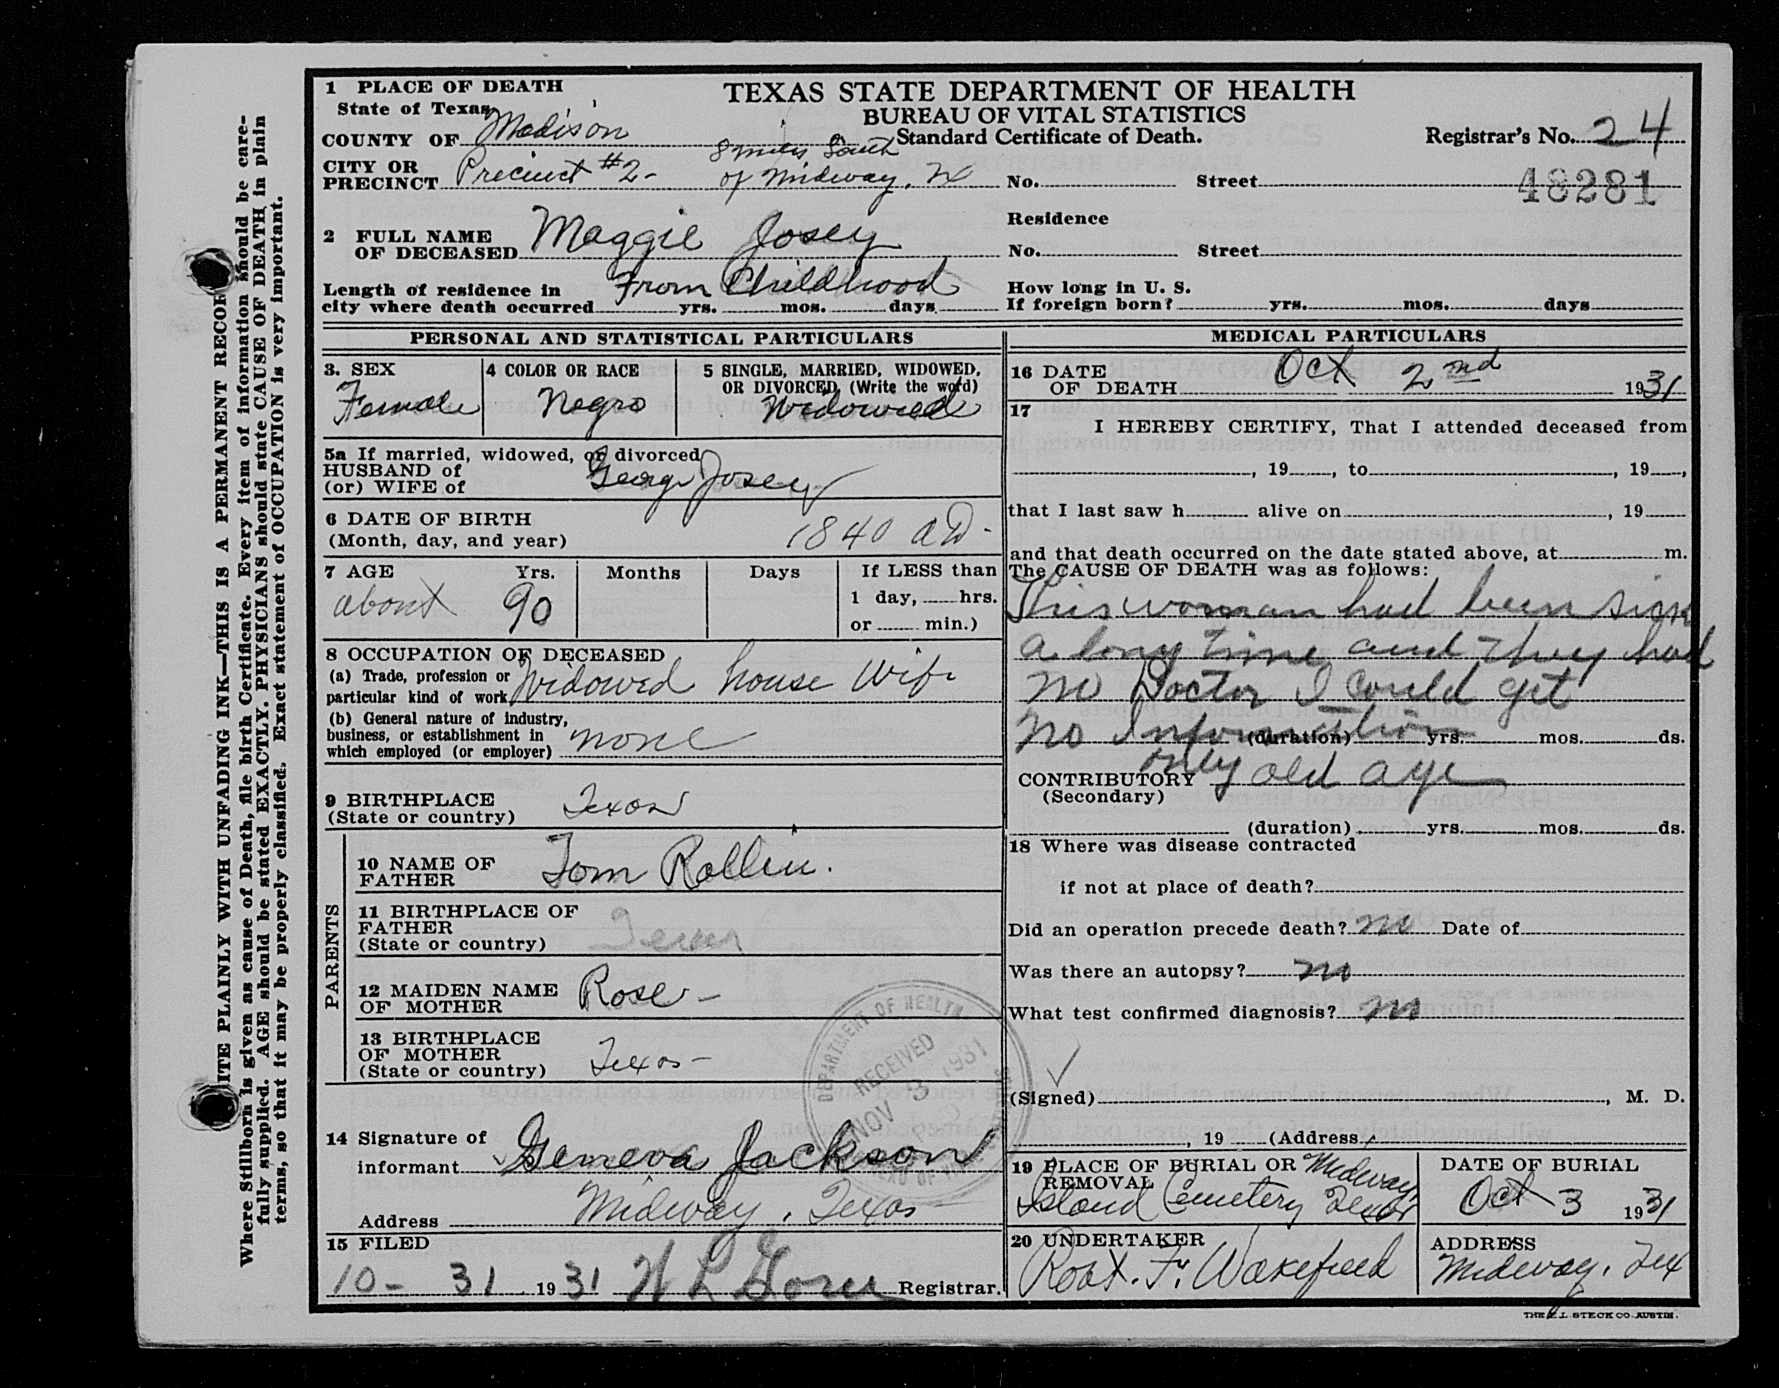 WRITE PLAINLY WITH UNFADING INK—THIS IS A PERMANENT RECORD
Where Stillborn is given as cause of Death, file birth Certificate. Every item of information should be care-
fully supplied. AGE should be stated EXACTLY. PHYSICIANS should state CAUSE OF DEATH in plain
terms, so that it may be properly classified. Exact statement of OCCUPATION is very important.
TEXAS STATE DEPARTMENT OF HEALTH
BUREAU OF VITAL STATISTICS
Standard Certificate of Death.
Registrar's No. 24
48281
1 PLACE OF DEATH
State of Texas
COUNTY OF Madison
CITY OR PRECINCT Precinct #2- 8 miles South
of Midway, Tx
No. Street
2 FULL NAME
OF DECEASED Maggie Josey
Residence
No. Street
Length of residence in
city where death occurred From Childhood yrs. mos. days
How long in U. S.
If foreign born? yrs. mos. days
PERSONAL AND STATISTICAL PARTICULARS
3. SEX
Female
4 COLOR OR RACE
Negro
5 SINGLE, MARRIED, WIDOWED,
OR DIVORCED, (Write the word)
Widowed
5a If married, widowed, or divorced
HUSBAND of
(or) WIFE of George Josey
6 DATE OF BIRTH
(Month, day, and year) 1840 AD-
7 AGE Yrs. Months Days If LESS than
about 90 1 day, hrs.
or min.)
8 OCCUPATION OF DECEASED
(a) Trade, profession or
particular kind of work Widowed house Wife
(b) General nature of industry,
business, or establishment in
which employed (or employer) none
9 BIRTHPLACE
(State or country) Texas
PARENTS
10 NAME OF
FATHER Tom Rollin.
11 BIRTHPLACE OF
FATHER
(State or country) Texas
12 MAIDEN NAME
OF MOTHER Rose-
13 BIRTHPLACE
OF MOTHER
(State or country) Texas-
14 Signature of
informant Geneva Jackson
Address Midway, Texas
15 FILED
10-31 1931 Registrar.
DEPARTMENT OF HEALTH
RECEIVED
NOV 3 1931
MEDICAL PARTICULARS
16 DATE
OF DEATH Oct 2nd 1931
17
I HEREBY CERTIFY, That I attended deceased from
, 19 , to , 19 ,
that I last saw h alive on , 19
and that death occurred on the date stated above, at m.
The CAUSE OF DEATH was as follows:
This woman had been sick
a long time and they had
no Doctor I could get
no Information
(duration) yrs. mos. ds.
only old age
CONTRIBUTORY
(Secondary)
(duration) yrs. mos. ds.
18 Where was disease contracted
if not at place of death?
Did an operation precede death? no Date of
Was there an autopsy? no
What test confirmed diagnosis? no
(Signed) , M. D.
, 19 (Address
19 PLACE OF BURIAL OR
REMOVAL Midway,
Island Cemetery Texas
DATE OF BURIAL
Oct 3 1931
20 UNDERTAKER
Robt. F. Wakefield
ADDRESS
Midway, Tex
THE E.L. STECK CO. AUSTIN.